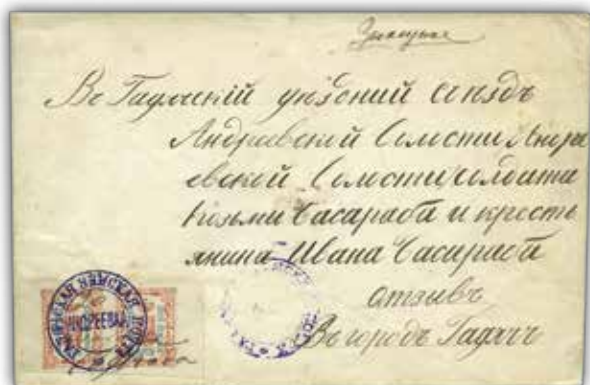 Заказное
Въ Гадячскій уѣздний съездъ
Андреевской Волости Андре
евской Волости солдата
Козьми Басараба и кресть
янина Ивана Басараба
отзывъ
Въ городъ Гадячъ
ГАДЯЧСКАЯ ЗЕМСКАЯ ПОЧТА
АНДРЕЕВКА